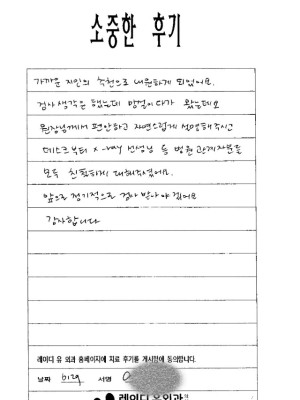 소중한 후기
가까운 지인의 추천으로 내원하게 되었어요.
검사 생각은 했는데 망설이다가 왔는데요
원장님께서 편안하고 자연스럽게 설명해주시고
데스크부터 X-ray 선생님 등 병원 관계자분들
모두 친절하게 대해주셨어요.
앞으로 정기적으로 검사 받아야 겠어요
감사합니다
레이디 유 외과 홈페이지에 치료 후기를 게시함에 동의합니다.
날짜 서명
레이디유외과